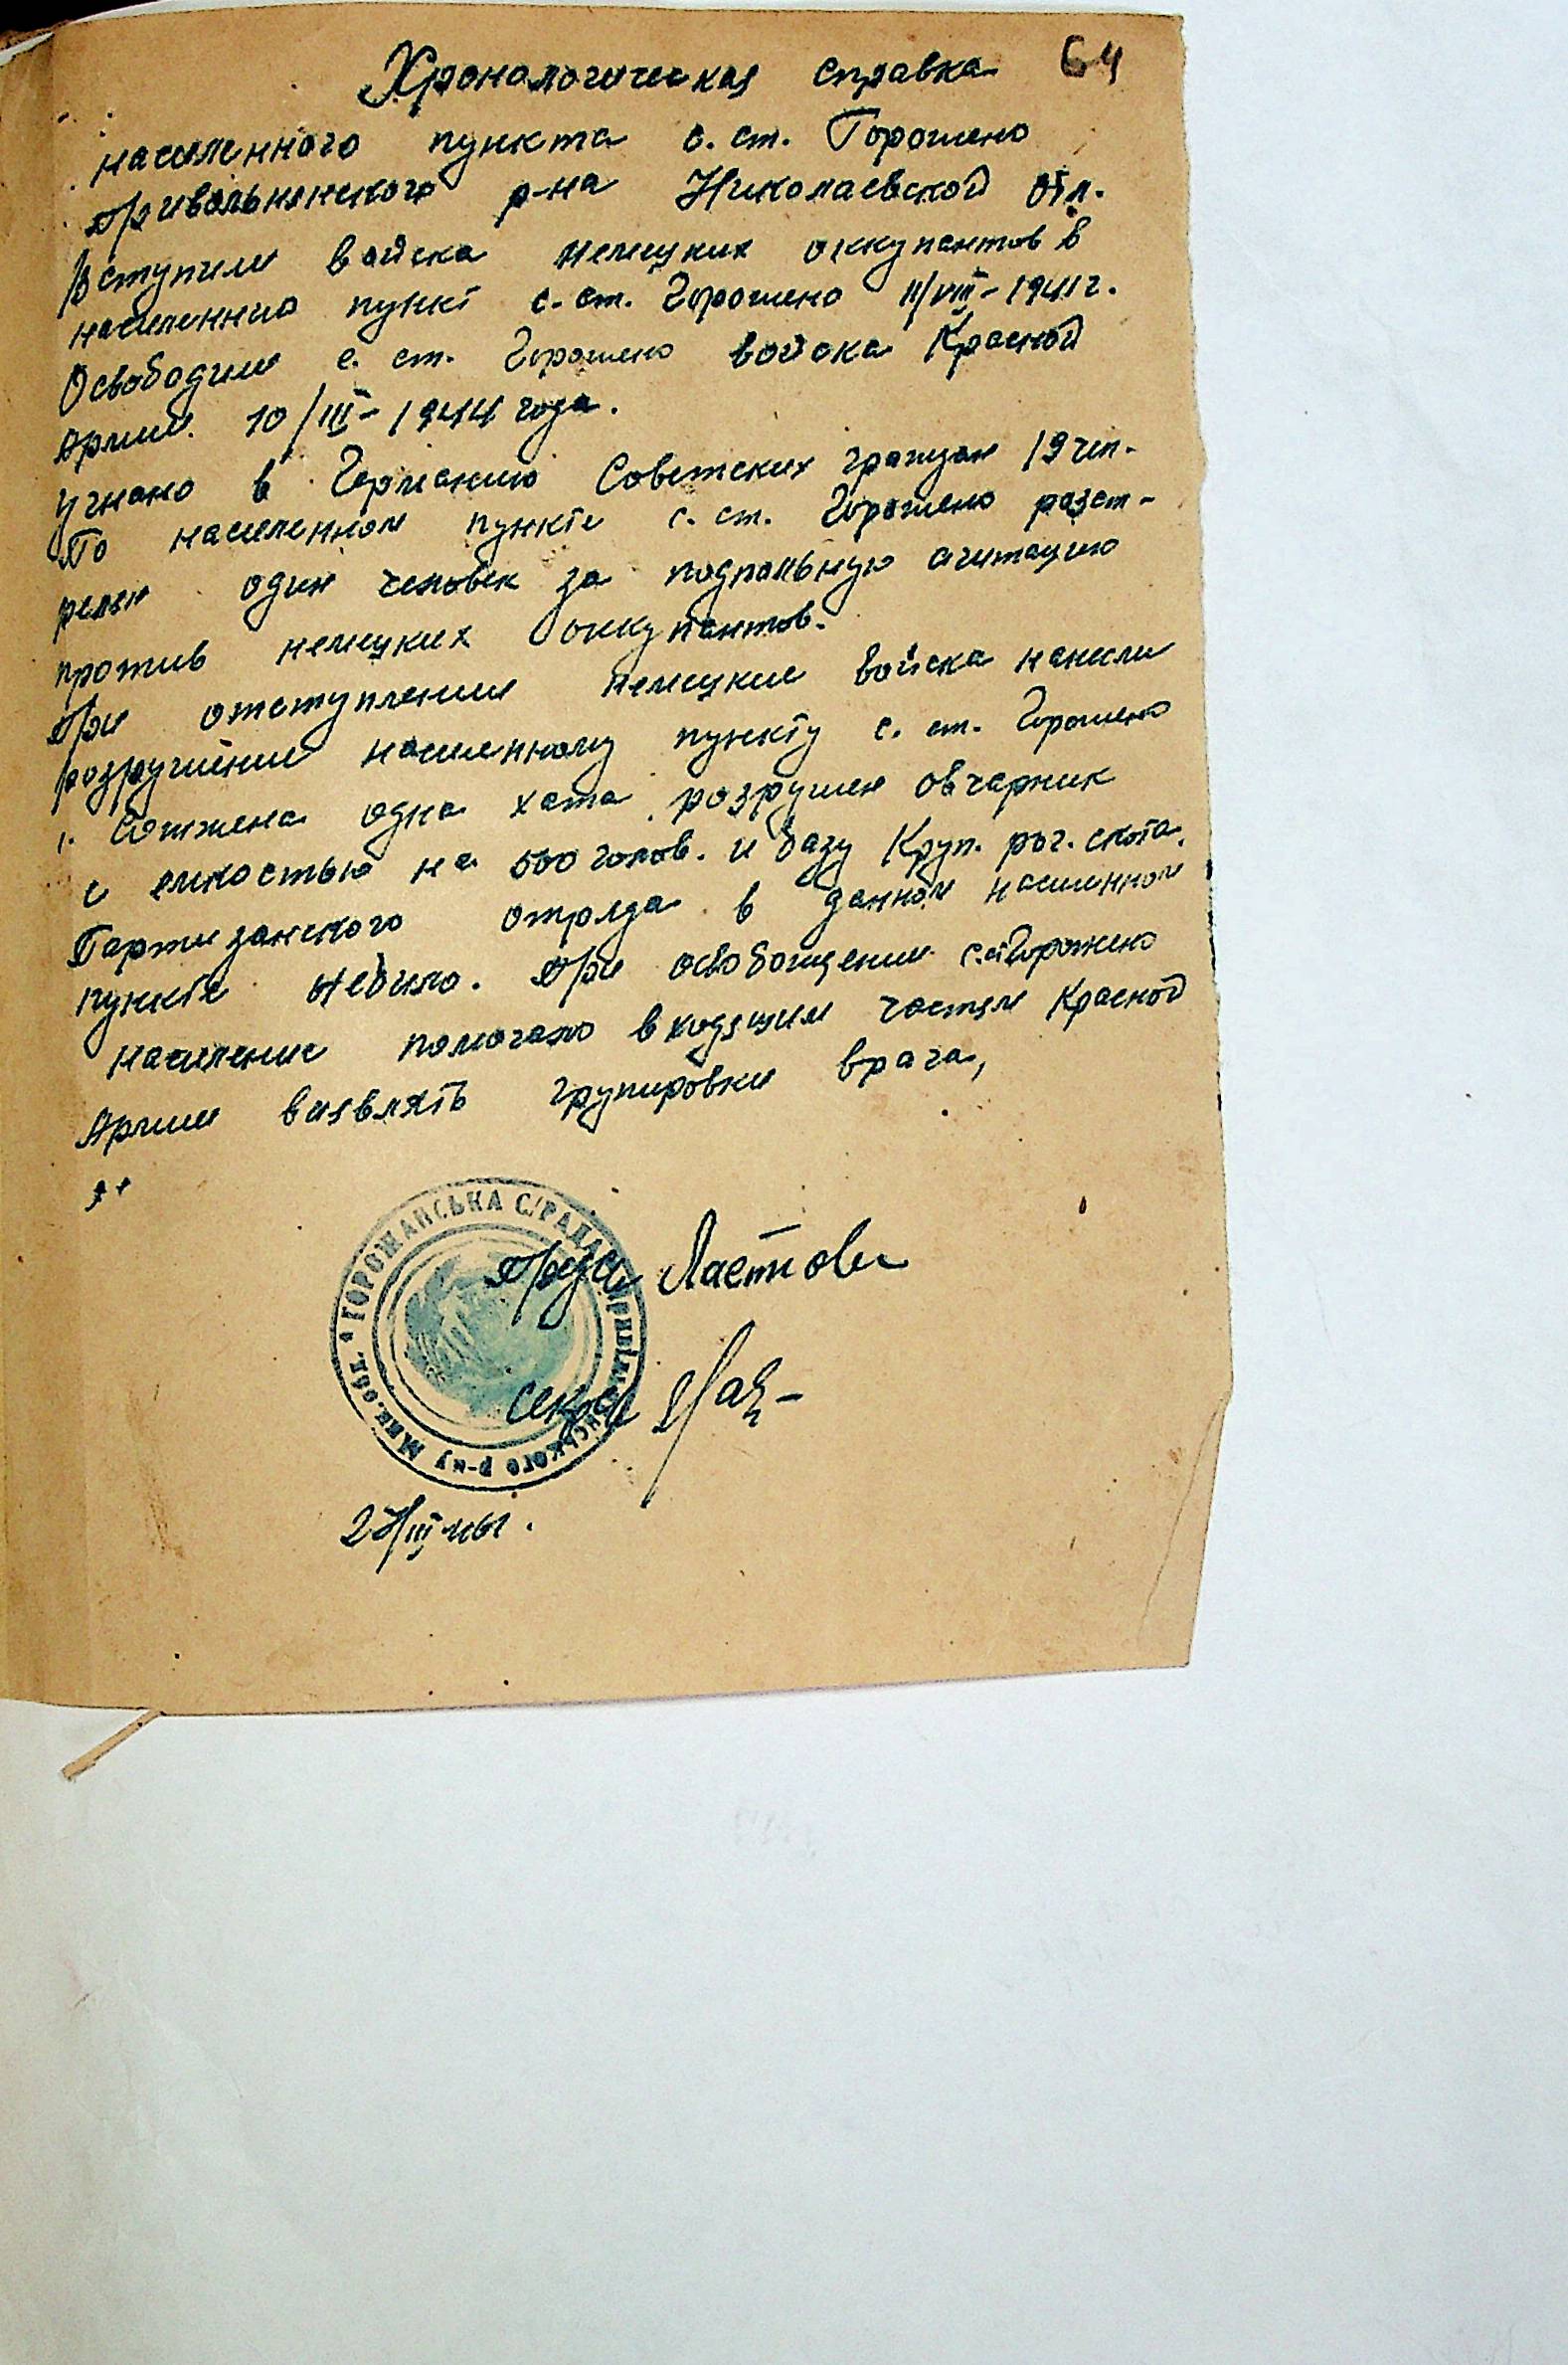 64
Хронологическая справка
населенного пункта с. ст. Горошено
Привольнянского р-на Николаевской обл.
Вступили войска немецких оккупантов в
населенние пункт с. ст. Горошено 11/VIII-1941г.
Освободили с. ст. Горошено войска Красной
Армии. 10/III-1944 года.
Угнано в Германию Советских граждан 19 чел.
По населенном пункте с. ст. Горошено разст-
релян один человек за подпольную агитацию
против немецких оккупантов.
При отступлении немецкие войска нанесли
розрушение населенному пункту с. ст. Горошено
1. Сожжена одна хата, розрушен овчарник
с емкостью на 500 голов. и базу Круп. рог. скота.
Партизанского отряда в данном населенном
пункте небило. При освобождении с.ст Горожено
население помогало входящим частям Красной
Армии виявлять групировки врага,
ГОРОЖАНСЬКА С/РАДА Привільнянського р-ну Мик. обл.
Предс
Секр